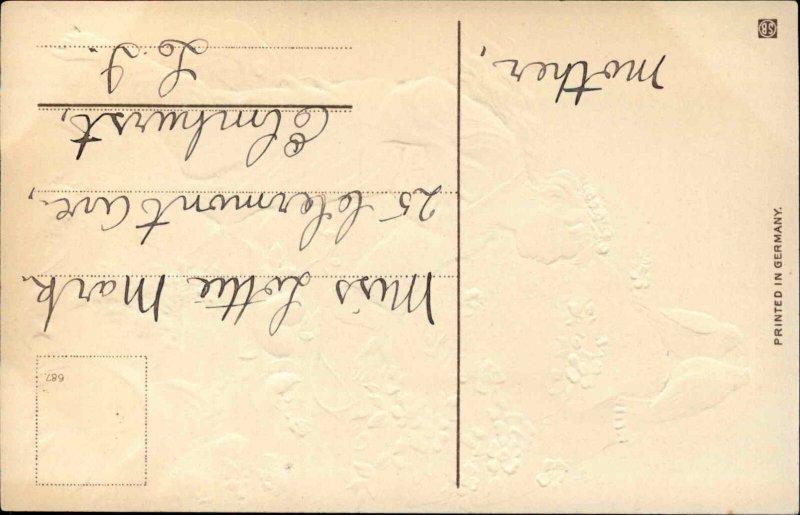 mother,
Miss Lottie Mark.
25 Clermont Ave.,
Elmhurst,
L. I.
687.
PRINTED IN GERMANY.
SB